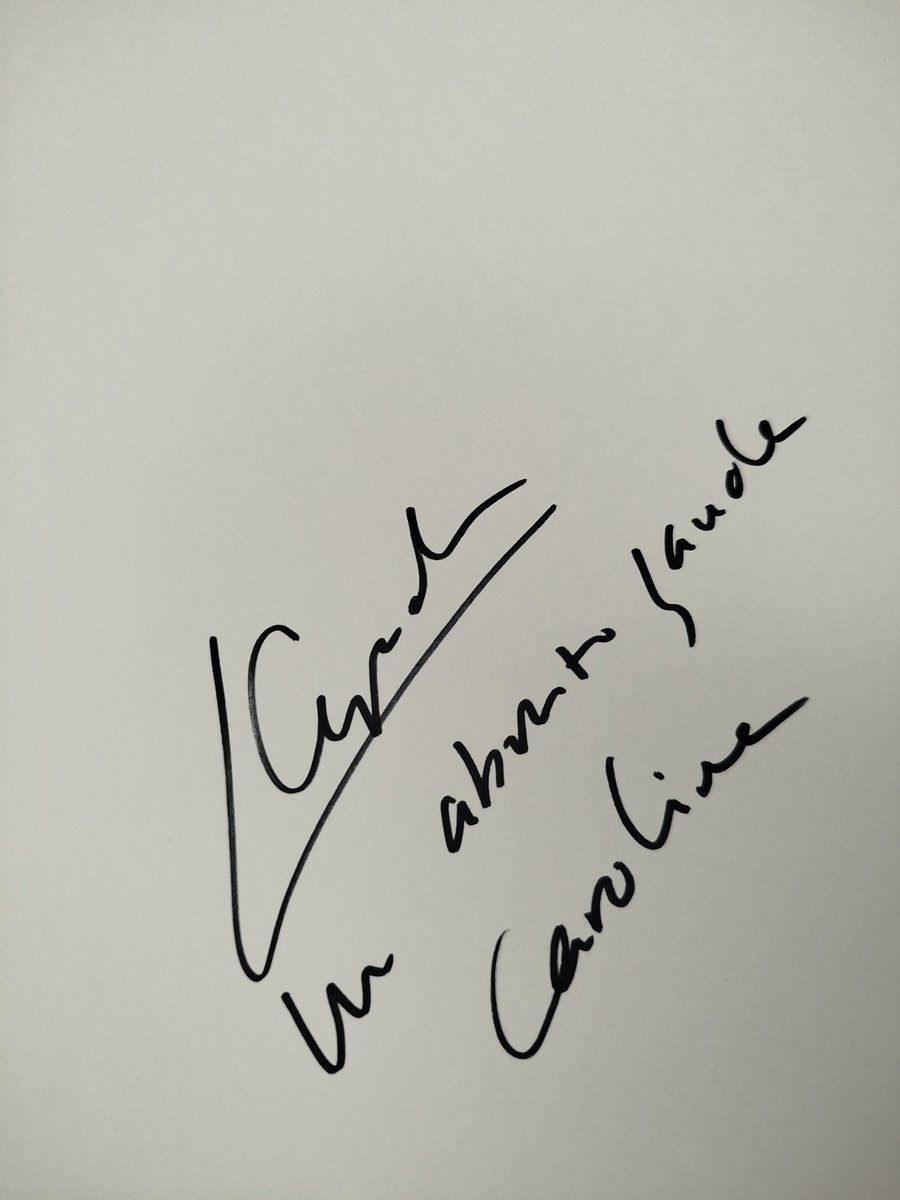 Un abrazo grande
Caroline